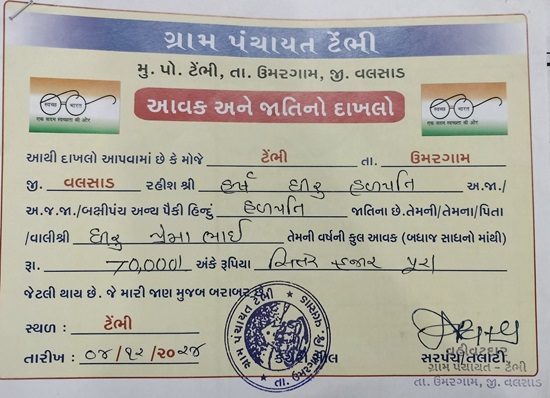 ગ્રામ પંચાયત ટેંભી
મુ. પો. ટેંભી, તા. ઉમરગામ, જી. વલસાડ
સ્વચ્છ ભારત
एक कदम स्वच्छता की ओर
આવક અને જાતિનો દાખલો
સ્વચ્છ ભારત
एक कदम स्वच्छता की ओर
આથી દાખલો આપવામાં છે કે મોજે ટેંભી તા. ઉમરગામ
જી. વલસાડ રહીશ શ્રી હર્ષ ધીરુ હળપતિ અ.જા./
અ.જ.જા./બક્ષીપંચ અન્ય પૈકી હિન્દુ હળપતિ જાતિના છે.તેમની/તેમના/પિતા
/વાલીશ્રી ધીરુ પ્રેમા ભાઈ તેમની વર્ષની કુલ આવક (બધાજ સાધનો માંથી)
રૂા. 70,000/ અંકે રૂપિયા સિત્તેર હજાર પુરા
જેટલી થાય છે. જે મારી જાણ મુજબ બરાબર છે.
સ્થળ : ટેંભી
તારીખ : ૦૪/૧૨/૨૦૨૪
ગ્રામ પંચાયત ટેંભી
તા. ઉમરગામ, જી. વલસાડ
સરપંચ/તલાટી
વહીવટદાર
ગ્રામ પંચાયત - ટેંભી
તા. ઉમરગામ, જી. વલસાડ